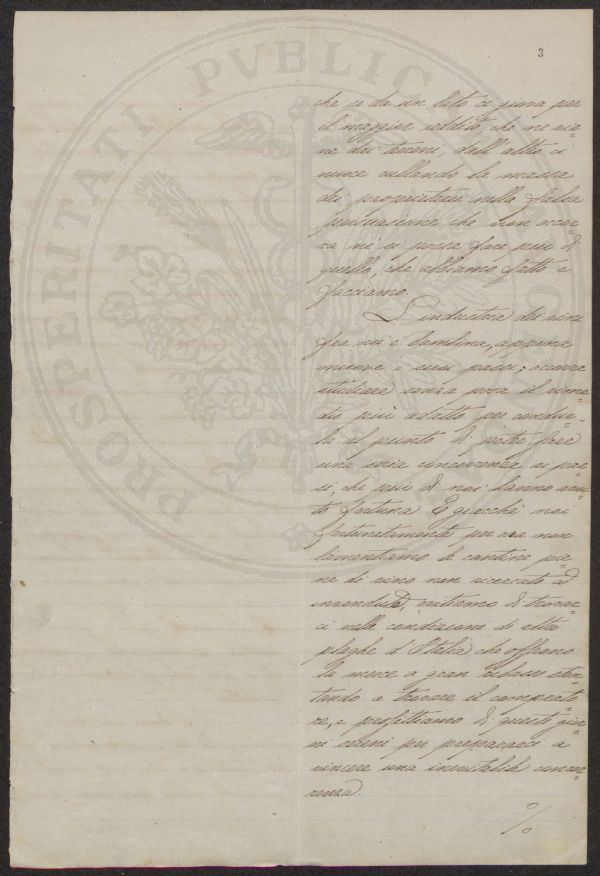 3
che se da un lato ci giova per
il maggior reddito, che ne vie=
ne dai terreni, dall'altro ci
nuoce cullando la massa
dei proprietari nella falsa
persuasione che non occor=
ra nè si possa fare più di
quello, che abbiamo fatto e
facciamo.
L'industria dei vini
fra noi è bambina, appena
muove i suoi passi; occorre
studiare senza posa il rime=
dio più adatto per condur=
la al punto di poter fare
una seria concorrenza ai pae=
si, che più di noi hanno avu=
to fortuna. E giacchè noi
fortunatamente per ora non
lamentiamo le cantine pie=
ne di vino non ricercato ed
invenduto, evitiamo di trovar=
ci nelle condizioni di altre
plaghe d'Italia che offrono
la merce a gran ribasso sten=
tando a trovare il comprato=
re, e profittiamo di questi gior=
ni sereni per prepararci a
vincere una inevitabile concor=
renza.
%
PROSPERITATI PVBLIC